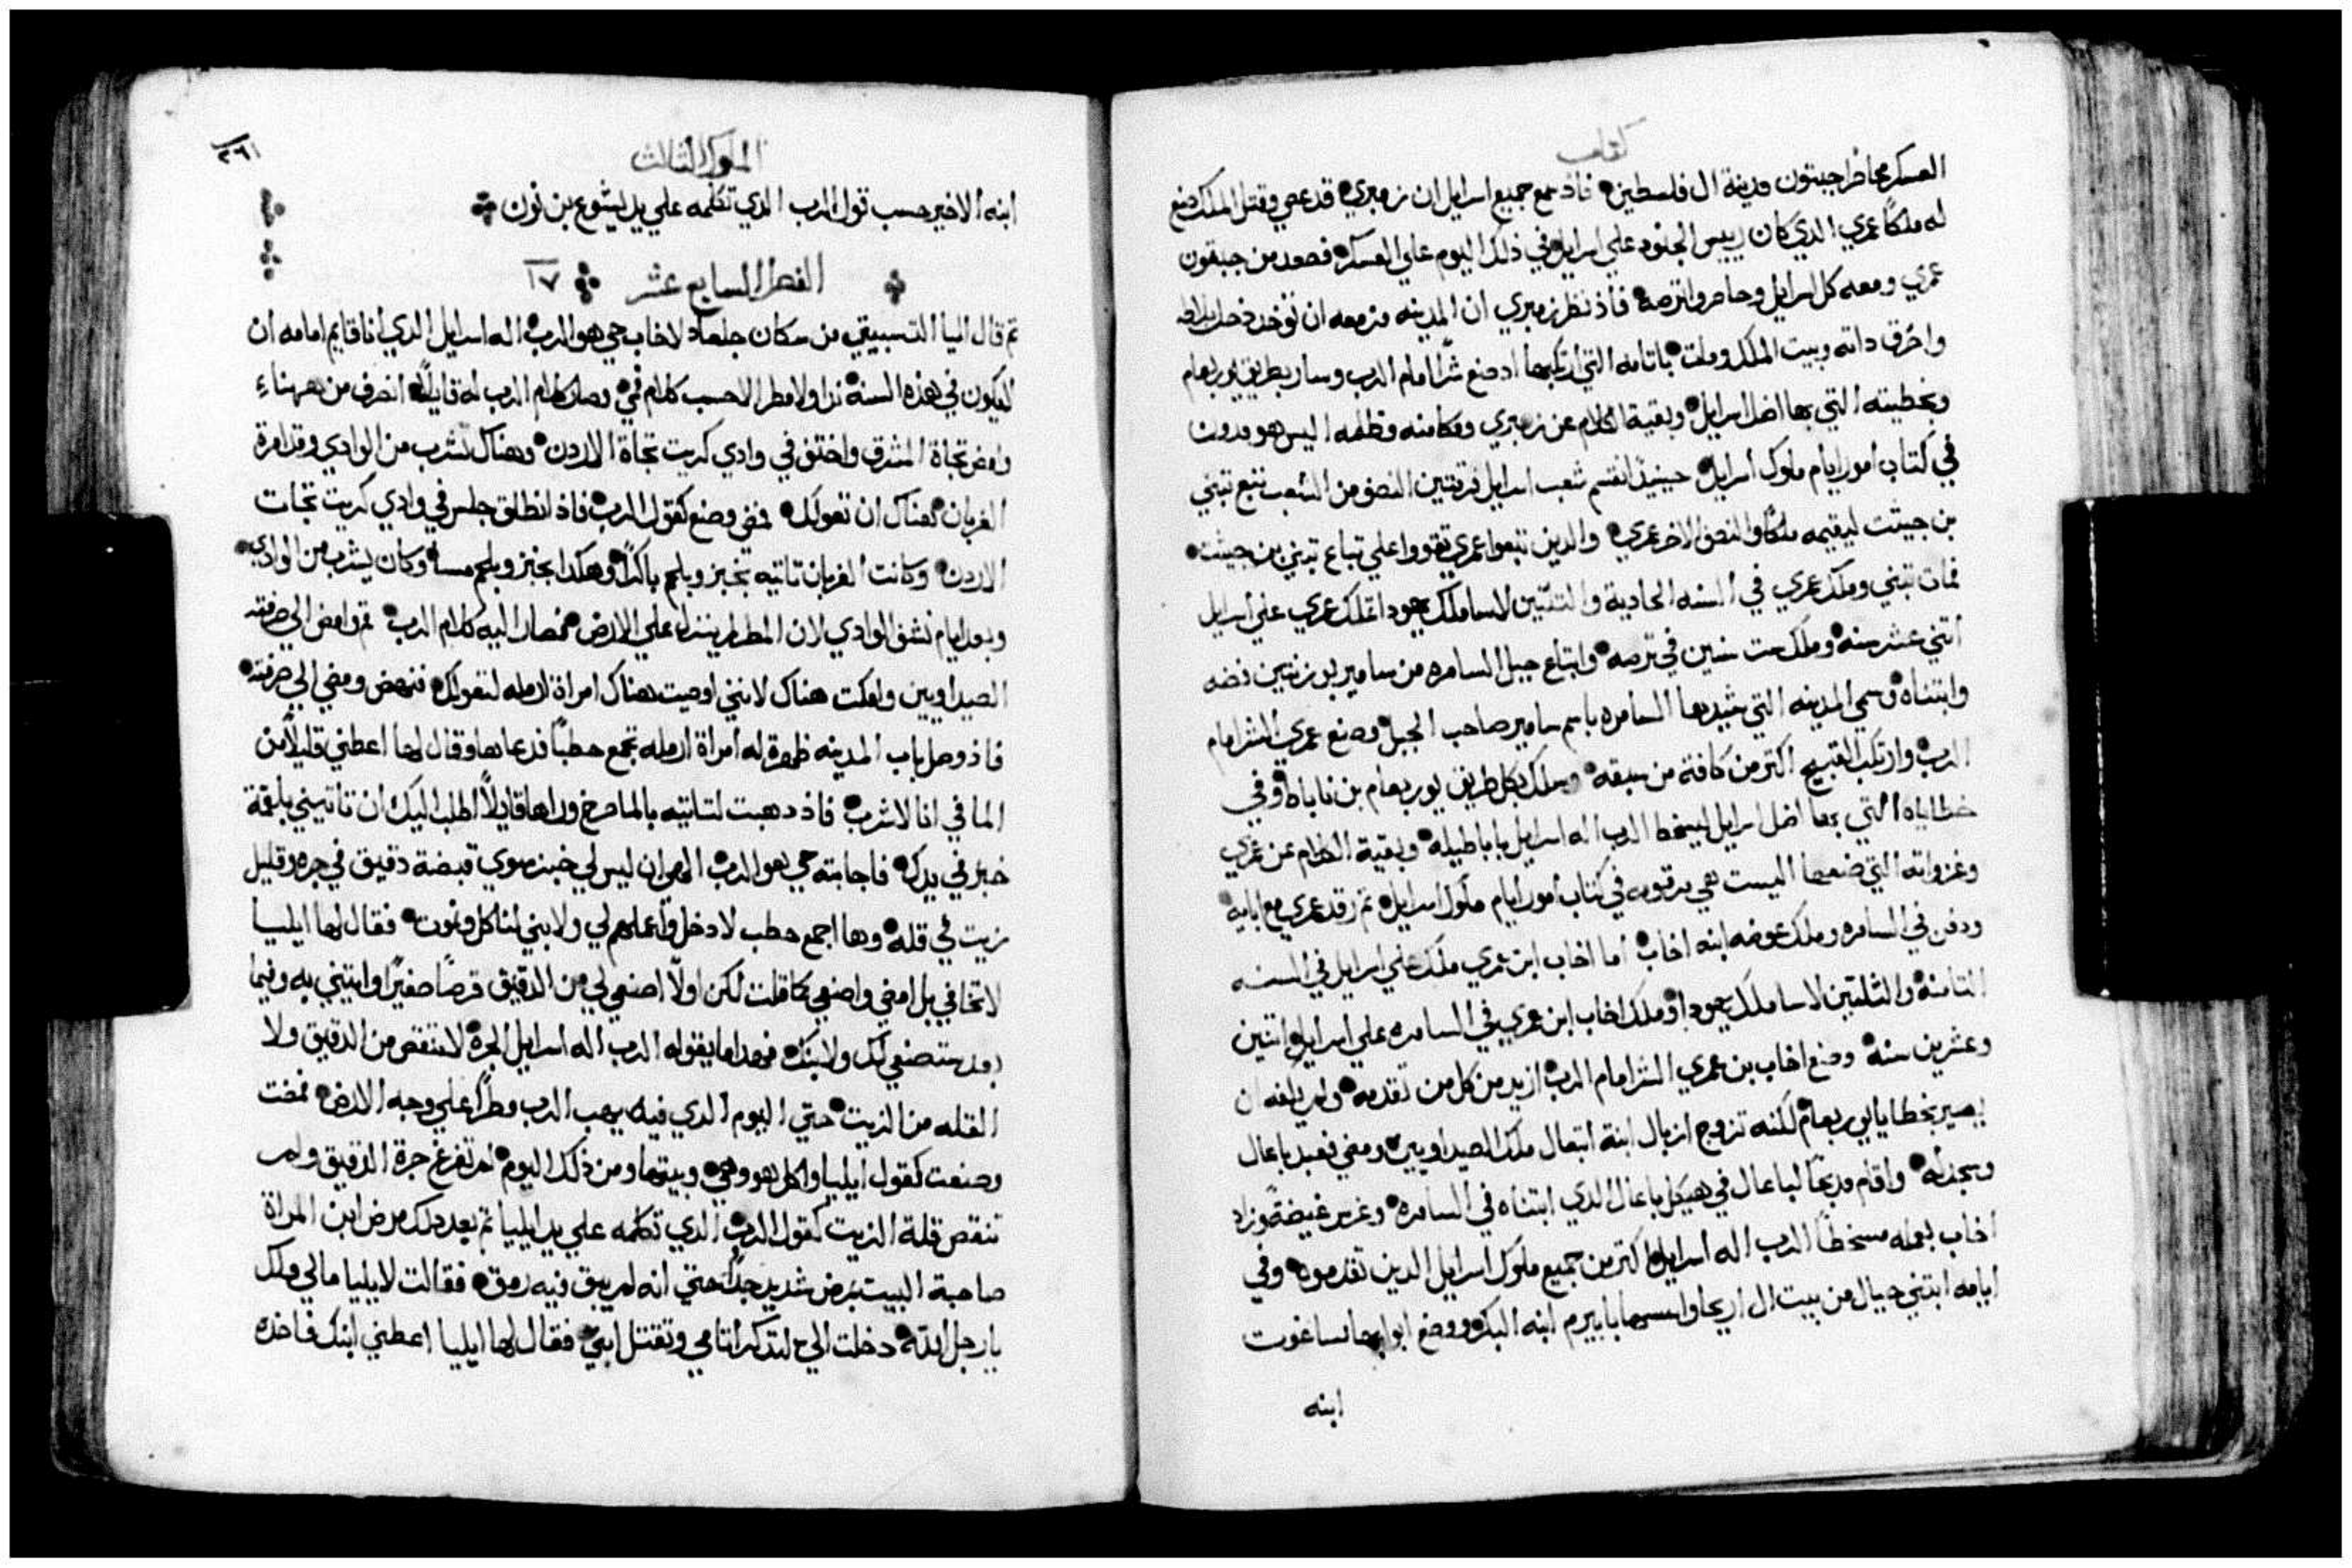 كتاب
العسكر محاضرا جبتون مدينة ال فلسطين فاذ سمع جميع اسرايل ان زمبري قد عصي وقتل الملك صنع
له ملكاً عمري الدي كان رييس الجنود علي اسرايل في ذلك اليوم علي العسكر فصعد من جبتون
عمري ومعه كل اسرايل وحاصروا ترصه فاذ نظر زمبري ان المدينه مزمعه ان توخد دخل بلاط
واحرق داته وبيت الملك ومات باتامه التي ارتكبها اد صنع شرًا امام الرب وسار بطريق يوربعام
وبخطيته التي بها اضل اسرايل وبقية الكلام عن زمبري ومكامنه وظلمه اليس هو مدون
في كتاب امور ايام ملوك اسرايل حينيذ انقسم شعب اسرايل فرقتين النصف من الشعب تتبع تبني
بن جينت ليقيمه ملكًا والنصف الاخر عمري والدين تتبعوا عمري تقووا علي تباع تبني بن جينت
فمات تبني وملك عمري في السنه الحادية والتلتين لاسا ملك يهودا تملك عمري علي اسرايل
اتني عشر سنه وملك ست سنين في ترصه وابتاع جبل السامره من سامير بوزنتين فضه
وابتناه وسمي المدينه التي شيدها السامره باسم سامير صاحب الجبل وصنع عمري الشر امام
الرب وارتكب القبيح اكتر من كافة من سبقه وسلك بكل طريق يوربعام بن ناباط وفي
خطاياه التي بها اضل اسرايل ليسخط الرب اله اسرايل باباطيله وبقية الكلام عن عمري
وغزواته التي صنعها اليست هي مرقومه في كتاب امور ايام ملوك اسرايل تم رقد عمري مع ابايه
ودفن في السامره وملك عوضه ابنه اخاب اما اخاب ابن عمري ملك علي اسرايل في السنه
التامنه والتلتين لاسا ملك يهودا وملك اخاب ابن عمري في السامره علي اسرايل اتنين
وعشرين سنه وصنع اخاب بن عمري الشر امام الرب ازيد من كل من تقدمه ولم يكفه ان
يسير بخطايا يوربعام لكنه تزوج ازبال ابنة ابتعال ملك الصيداويين ومضي فعبد باعال
وسجد له واقام مدبحًا لباعال في هيكل باعال الدي ابتناه في السامره وغرس غيضةً وزاد
اخاب بعمله مسخطًا الرب اله اسرايل اكتر من جميع ملوك اسرايل الدين تقدموه وفي
ايامه ابتني حيال من بيت ال اريحا واسسها بابيرم ابنه البكر ووضع ابوابها بساغوب
ابنه
الملوك التالت
٣٦١
ابنه الاخير حسب قول الرب الدي تكلمه علي يد ايشوع بن نون
الفصل السابع عشر ١٧
تم قال ايليا التسبيتي من سكان جلعاد لاخاب حي هو الرب اله اسرايل الدي انا قايم امامه ان
لايكون في هذه السنه ندا ولا مطر الا حسب كلام فمي وصار كلام الرب له قايلًا انصرف من ههناء
وامض تجاة المشرق واختف في وادي كريت تجاة الاردن وهناك تشرب من الوادي وقد امرة
الغربان هناك ان تعولك فمضي وصنع كقول الرب فاذ انطلق جلس في وادي كريت تجات
الاردن وكانت الغربان تاتيه بخبز وبلحم باكرًا وهكدا بخبز وبلحم مسا وكان يشرب من الوادي
وبعد ايام نشف الوادي لان المطر لم ينزل علي الارض فصار اليه كلام الرب قم وامض الي صرفته
الصيداويين وامكت هناك لانني اوصيت هناك امراة ارمله لتعولك فنهض ومضي الي صرفته
فاذ وصل باب المدينه ظهرة له امراة ارمله تجمع حطبًا فدعاها وقال لها اعطني قليلًا من
الما في انا لاشرب فاذ دهبت لتاتيه بالما صرخ وراها قايلًا اطلب اليك ان تاتيني بلقمة
خبز في يدك فاجابته حي هو الرب الهك ان ليس لي خبز سوي قبضة دقيق في جره وقليل
زيت في قله وها اجمع حطب لادخل واعملهم لي ولابني لناكل ونموت فقال لها ايليا
لا تخافي بل امضي واصنعي كما قلت لكن اولًا اصنعي لي من الدقيق قرصًا صغيرًا وايتيني به وفيما
بعد ستصنعي لك ولابنك فهدا ما يقوله الرب اله اسرايل الجرة لا تنقص من الدقيق ولا
القله من الزيت حتي اليوم الدي فيه يهب الرب مطرًا علي وجه الارض فمضت
وصنعت كقول ايليا واكل هو وهي وبيتها ومن ذلك اليوم لم تفرغ جرة الدقيق ولم
تنقص قلة الزيت كقول الرب الدي تكلمه علي يد ايليا تم بعد دلك مرض ابن المراة
صاحبة البيت بمرض شديد جدًا حتي انه لم يبق فيه رمق فقالت لايليا مالي ولك
يا رجل الله دخلت الي لتدكر اتامي وتقتل ابني فقال لها ايليا اعطني ابنك فاخده